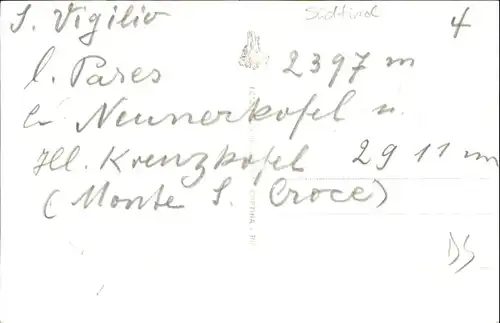 Südtirol
S. Vigilio 4
l. Pares 2397 m
Neunerkofel u.
Hl. Kreuzkofel 2911 m
(Monte S. Croce)
DS